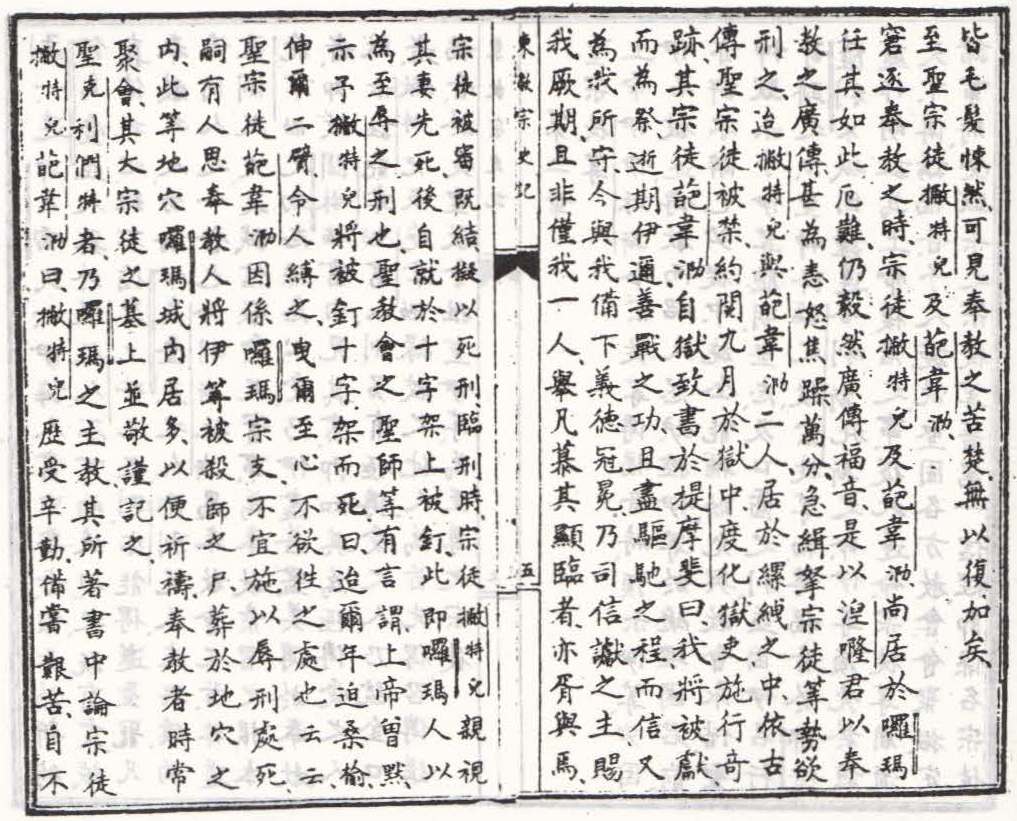 皆毛髮悚然可見奉教之苦楚無以復加矣
至聖宗徒撇特兒及葩韋泐
窘逐奉教之時宗徒撇特兒及葩韋泐尚居於囉瑪
任其如此厄難仍毅然廣傳福音是以湼隆君以奉
教之廣傳甚為恚怒焦躁萬分急緝拏宗徒等勢欲
刑之迨撇特兒與葩韋泐二人居於縲絏之中依古
傳聖宗徒被禁約閱九月於獄中度化獄吏施行奇
跡其宗徒葩韋泐自獄致書於提摩斐曰我將被獻
而為祭逝期伊邇善戰之功且盡驅馳之程而信又
為我所守今與我備下義德冠冕乃司信讞之主賜
我厥期且非僅我一人舉凡慕其顯臨者亦胥與焉
東教宗史記
五
宗徒被審既結擬以死刑臨刑時宗徒撇特兒親視
其妻先死後自就於十字架上被釘此即囉瑪人以
為至辱之刑也聖教會之聖師等有言謂上帝曾默
示予撇特兒將被釘十字架而死曰迨爾年迫桑榆
伸爾二臂令人縛之曳爾至心不欲徃之處也云云
聖宗徒葩韋泐因係囉瑪宗支不宜施以辱刑處死
嗣有人思奉教人將伊等被殺師之尸葬於地穴之
內此等地穴囉瑪城內居多以便祈禱奉教者時常
聚會其大宗徒之墓上並敬謹記之
聖克利們特者乃囉瑪之主教其所著書中論宗徒
撇特兒葩韋泐曰撇特兒歷受辛勤備嘗艱苦自不